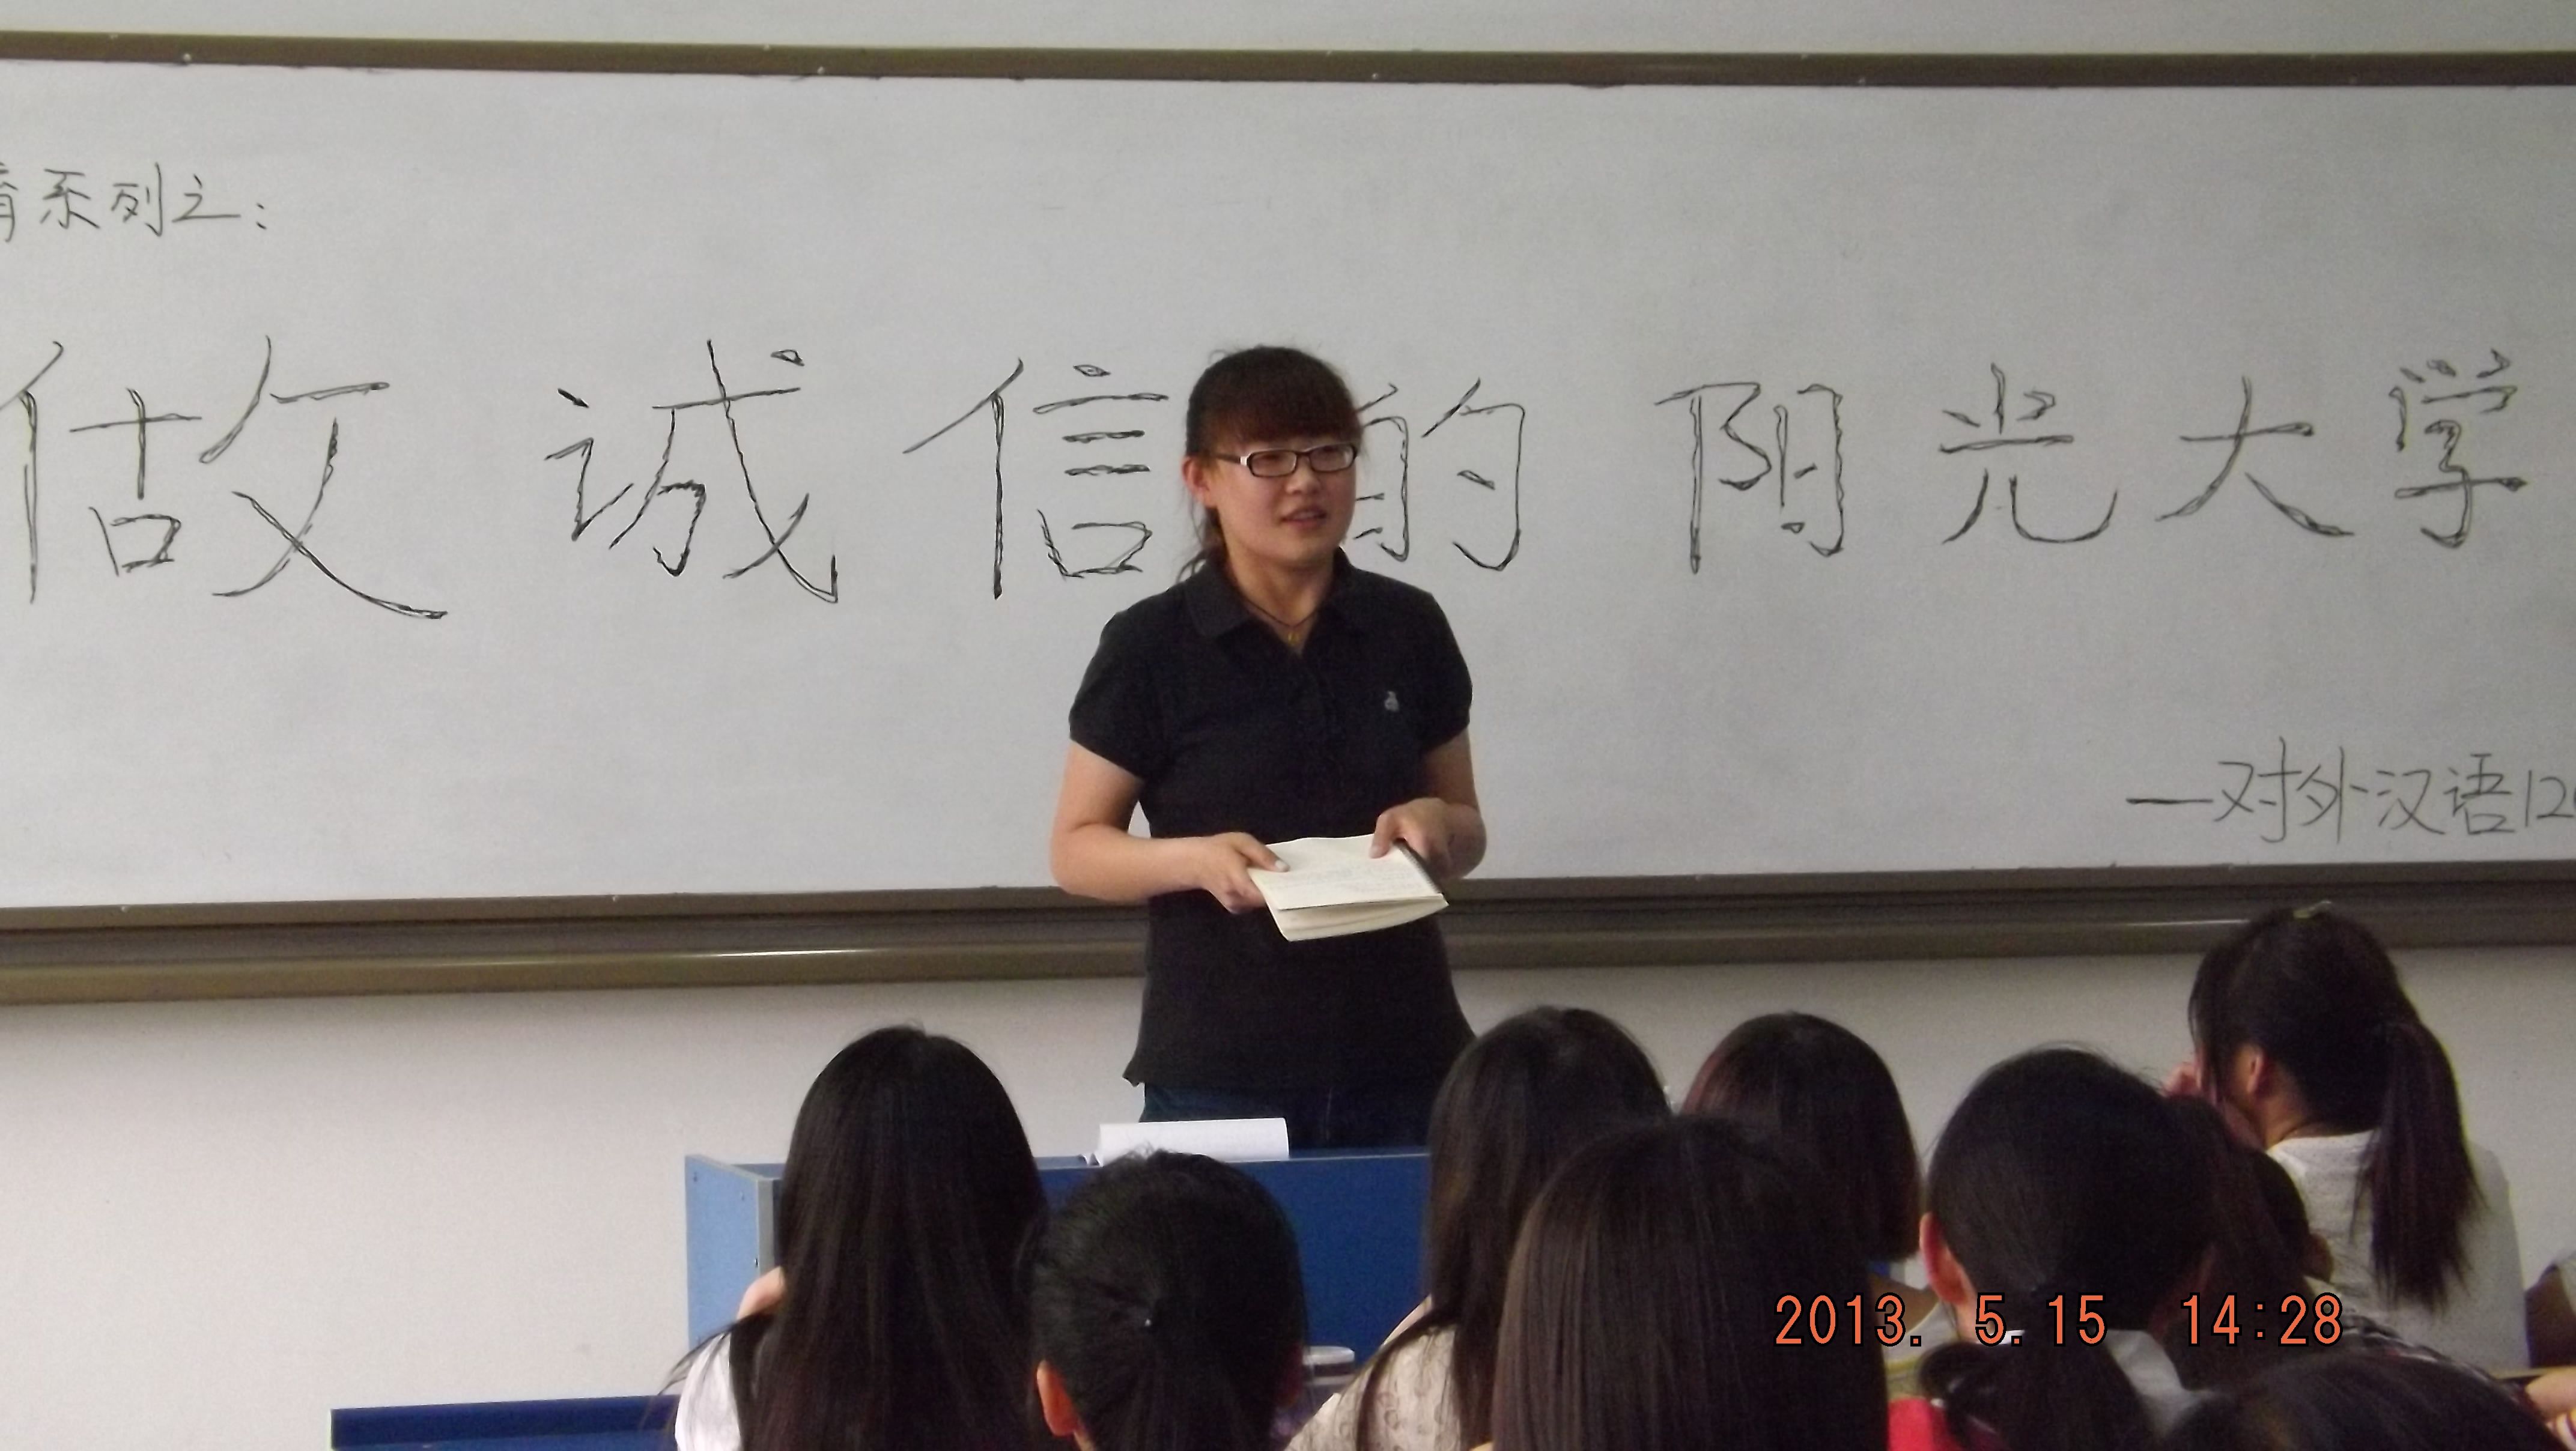 育系列之:
做诚信的阳光大学
—对外汉语120
2013. 5.15 14:28